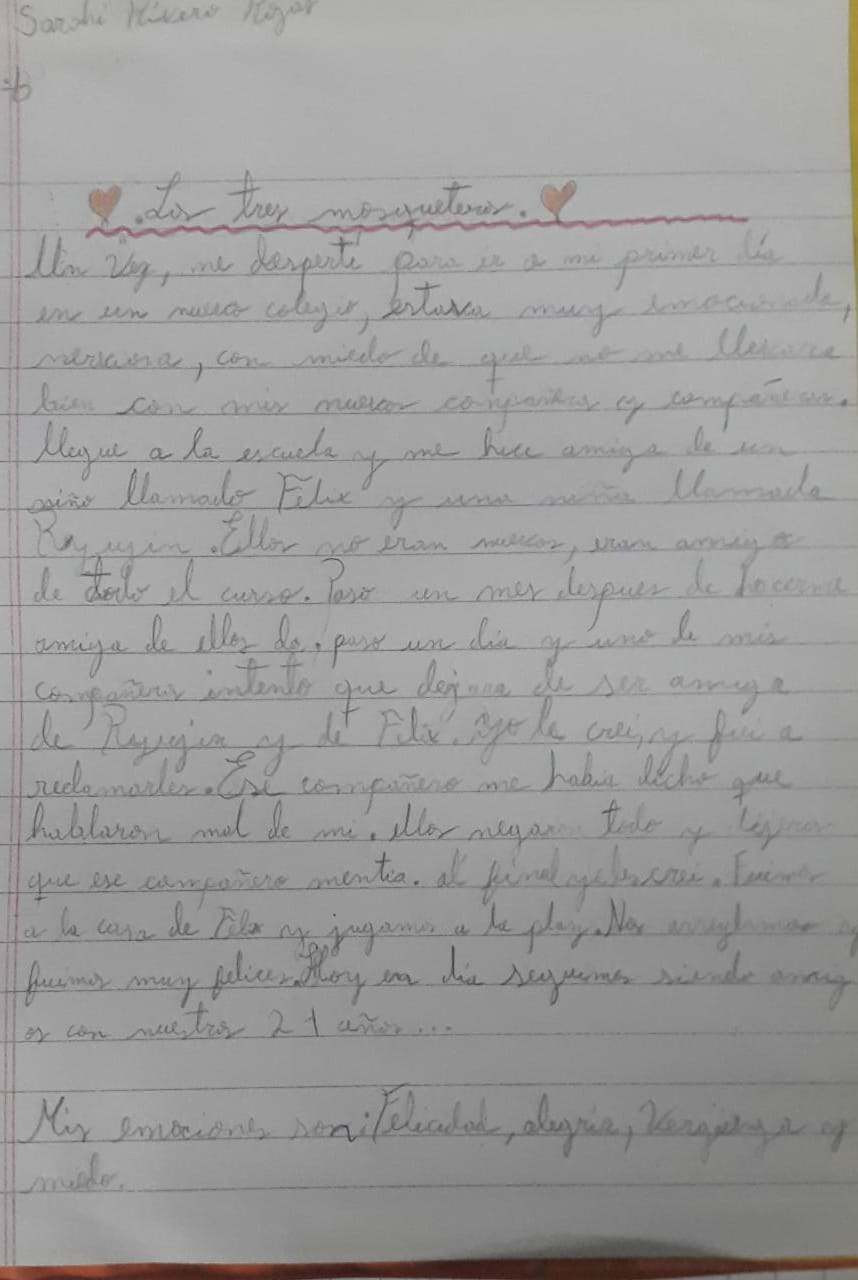 Sarahi Rivero Rojas
.Los tres mosqueteros.
Un Vez, me desperté para ir a mi primer día
en un nuevo colegio, estava muy emocionada,
nerviosa, con miedo de que no me llevara
bien con mis nuevos compañeros y compañeras.
llegue a la escuela y me hice amiga de un
niño llamado Félix y una niña llamada
Ryujin. Ellos no eran nuevos, eran amigos
de todo el curso. Paso un mes despues de hacerme
amiga de ellos do. paso un dia y uno de mis
compañeros intento que dejara de ser amiga
de Ryujin y de Felix. yo le crei, y fui a
reclamarles. Ese compañero me habia dicho que
hablaron mal de mi. ellos negaron todo y dijeron
que ese compañero mentia. al final yo les crei. Fuimos
a la casa de Felix y jugamos a la play. Nos arreglamos y
fuimos muy felices. Hoy en dia seguimos siendo amig
os con nuestros 21 años...
Mis emociones son: Felicidad, alegria, Vergüenza y
miedo.